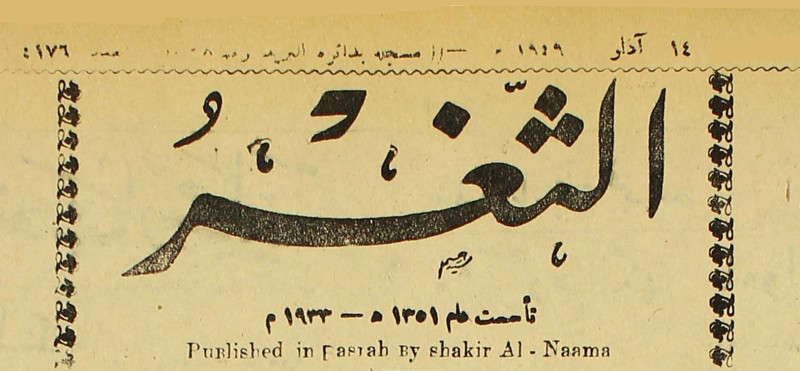 ١٤ آذار ١٩٤٩ مسجله بدائره البريد
الثغر
تأسست عام ١٣٥١ ه — ١٩٣٣ م
Published in Basrah By shakir Al - Naama